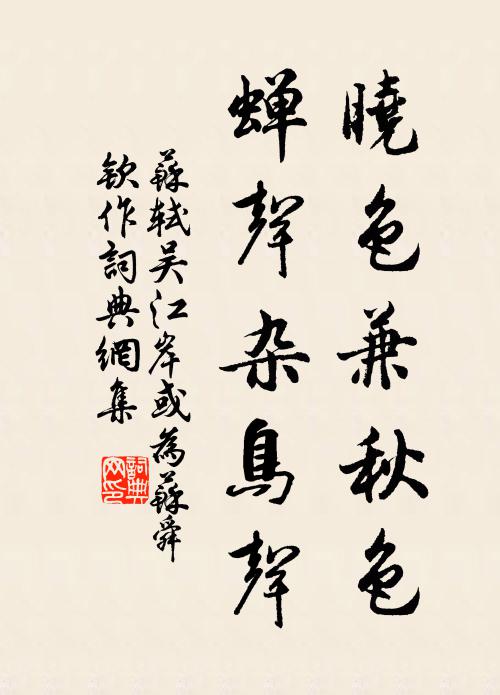 曉色兼秋色
蟬聲杂鳥聲
蘇軾吴江岸或為蘇舜
欽作詞典網集
詞典
网印